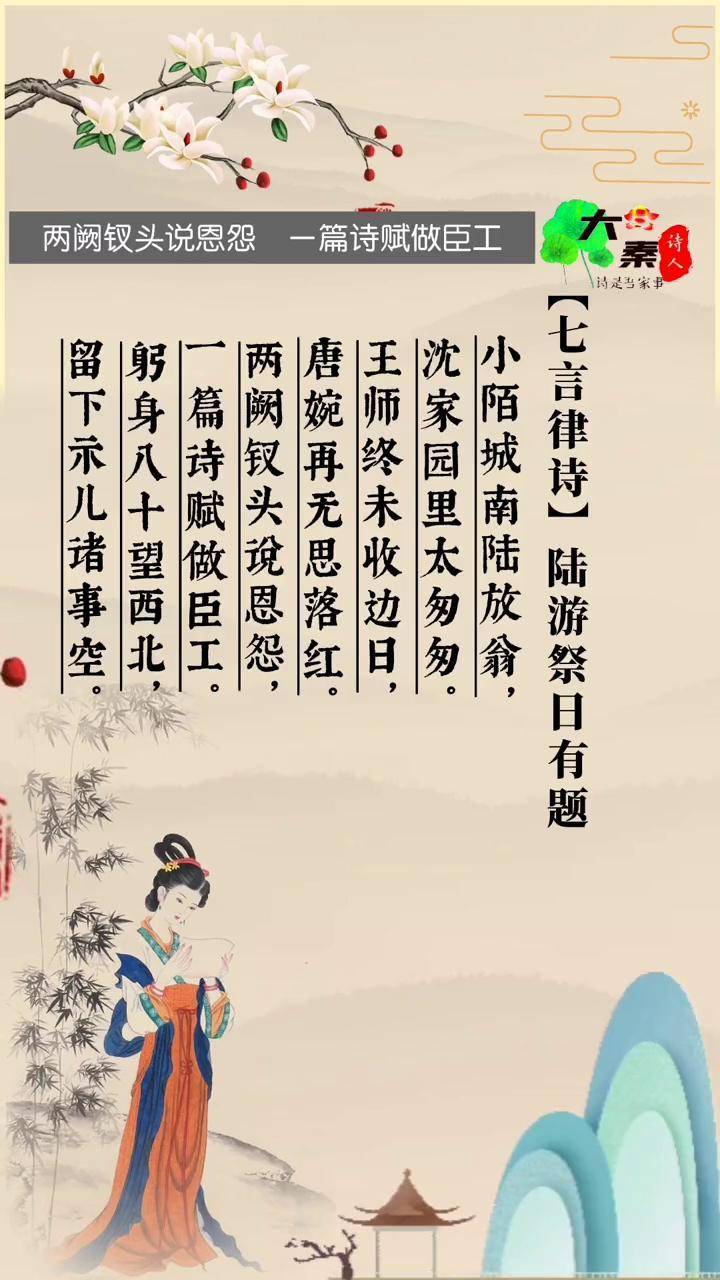 两阙钗头说恩怨 一篇诗赋做臣工
大秦
诗人
诗是吾家事
【七言律诗】陆游祭日有题
小陌城南陆放翁，
沈家园里太匆匆。
王师终未收边日，
唐婉再无思落红。
两阙钗头说恩怨，
一篇诗赋做臣工。
躬身八十望西北，
留下示儿诸事空。